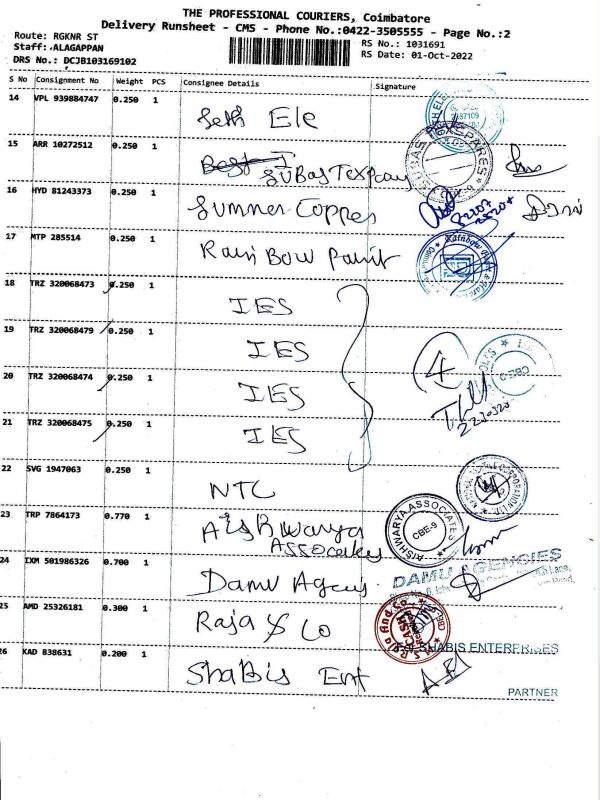 THE PROFESSIONAL COURIERS, Coimbatore
Delivery Runsheet - CMS - Phone No.:0422-3505555 - Page No.:2
Route: RGKNR ST
Staff: ALAGAPPAN
DRS No.: DCJB103169102
RS No.: 1031691
RS Date: 01-Oct-2022
S No Consignment No Weight PCS Consignee Details Signature
14 VPL 939884747 0.250 1 Seth Ele
15 ARR 10272512 0.250 1 Best I
SUBas Tex
16 HYD 81243373 0.250 1 Summer Copper
17 MTP 285514 0.250 1 Rain Bow Paint
18 TRZ 320068473 0.250 1 IES
19 TRZ 320068479 0.250 1 IES
4
20 TRZ 320068474 0.250 1 IES
21 TRZ 320068475 0.250 1 IES
22 SVG 1947063 0.250 1 NTC
23 TRP 7864173 0.770 1 Aishwarya
Associates
AISHWARYA ASSOCIATES
CBE-9
24 IXM 501986326 0.700 1 Damu Agencies
DAMU AGENCIES
25 AMD 25326181 0.300 1 Raja & Co
Raja And Co.
26 KAD 838631 0.200 1 Shabis Ent
SHABIS ENTERPRISES
PARTNER